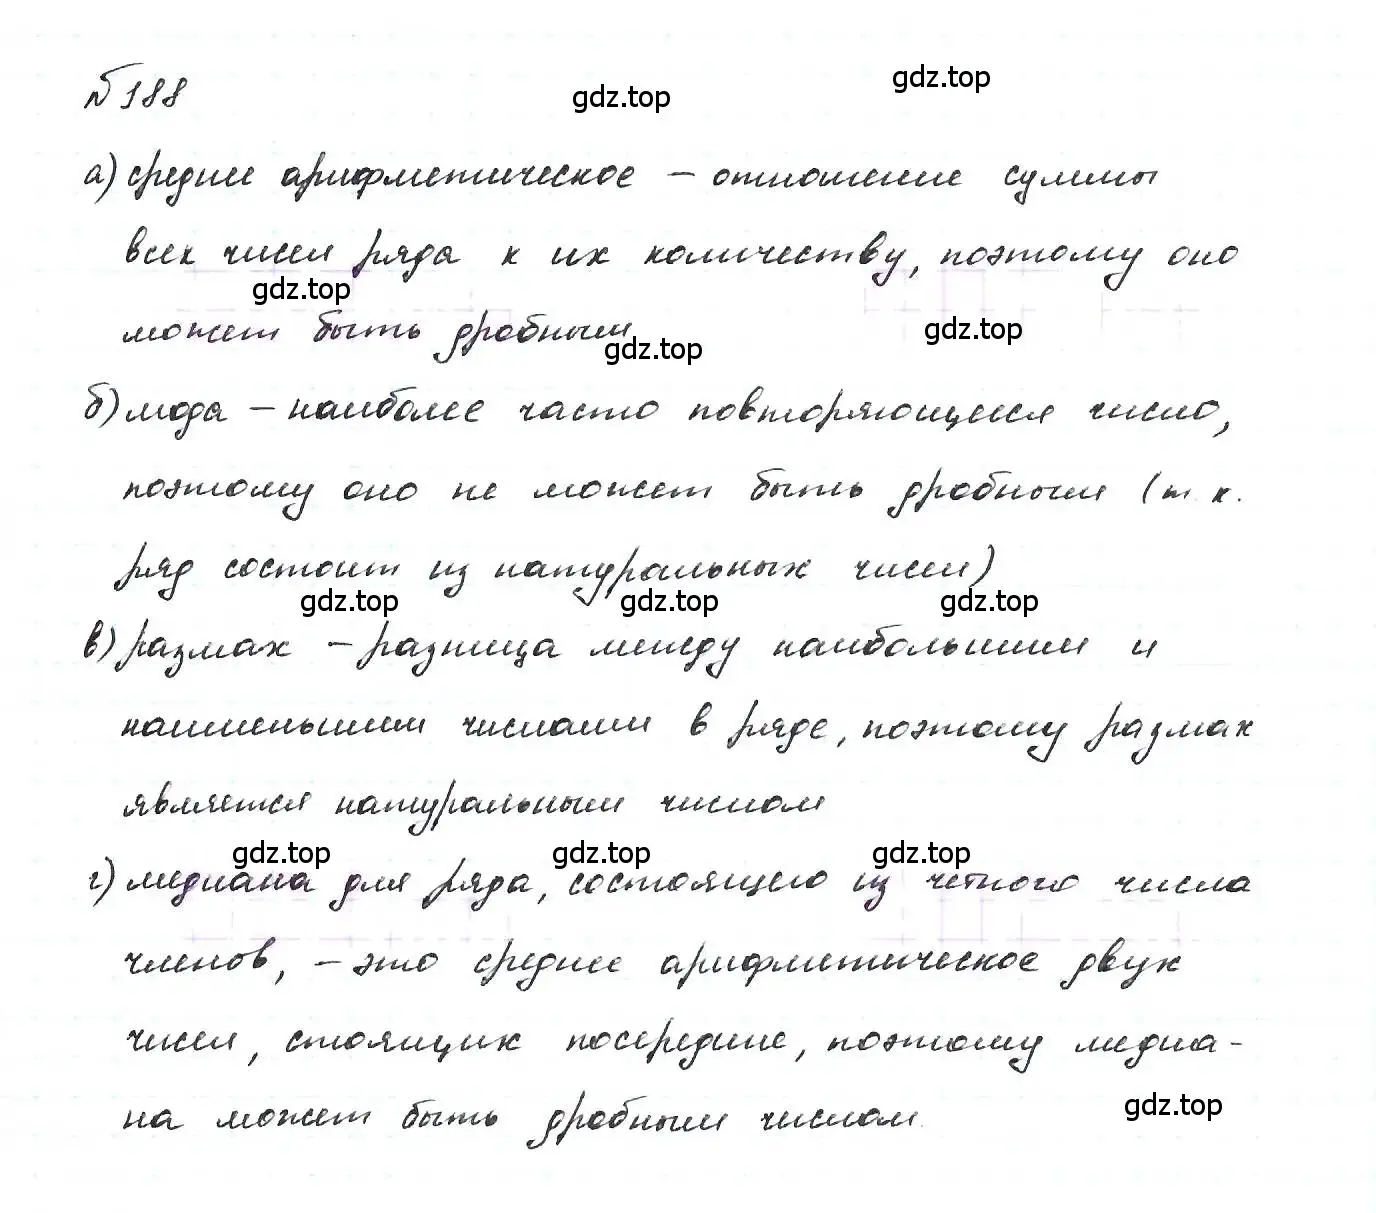 №188
gdz.top
gdz.top
а) среднее арифметическое – отношение суммы
всех чисел ряда к их количеству, поэтому оно
gdz.top
может быть дробным
gdz.top
gdz.top
б) мода – наиболее часто повторяющееся число,
поэтому оно не может быть дробным (т.к.
ряд состоит из натуральных чисел)
gdz.top
gdz.top
gdz.top
в) размах – разница между наибольшим и
наименьшим числами в ряде, поэтому размах
является натуральным числом
gdz.top
gdz.top
gdz.top
г) медиана для ряда, состоящего из четного числа
членов, – это среднее арифметическое двух
чисел, стоящих посередине, поэтому медиа-
на может быть дробным числом.
gdz.top